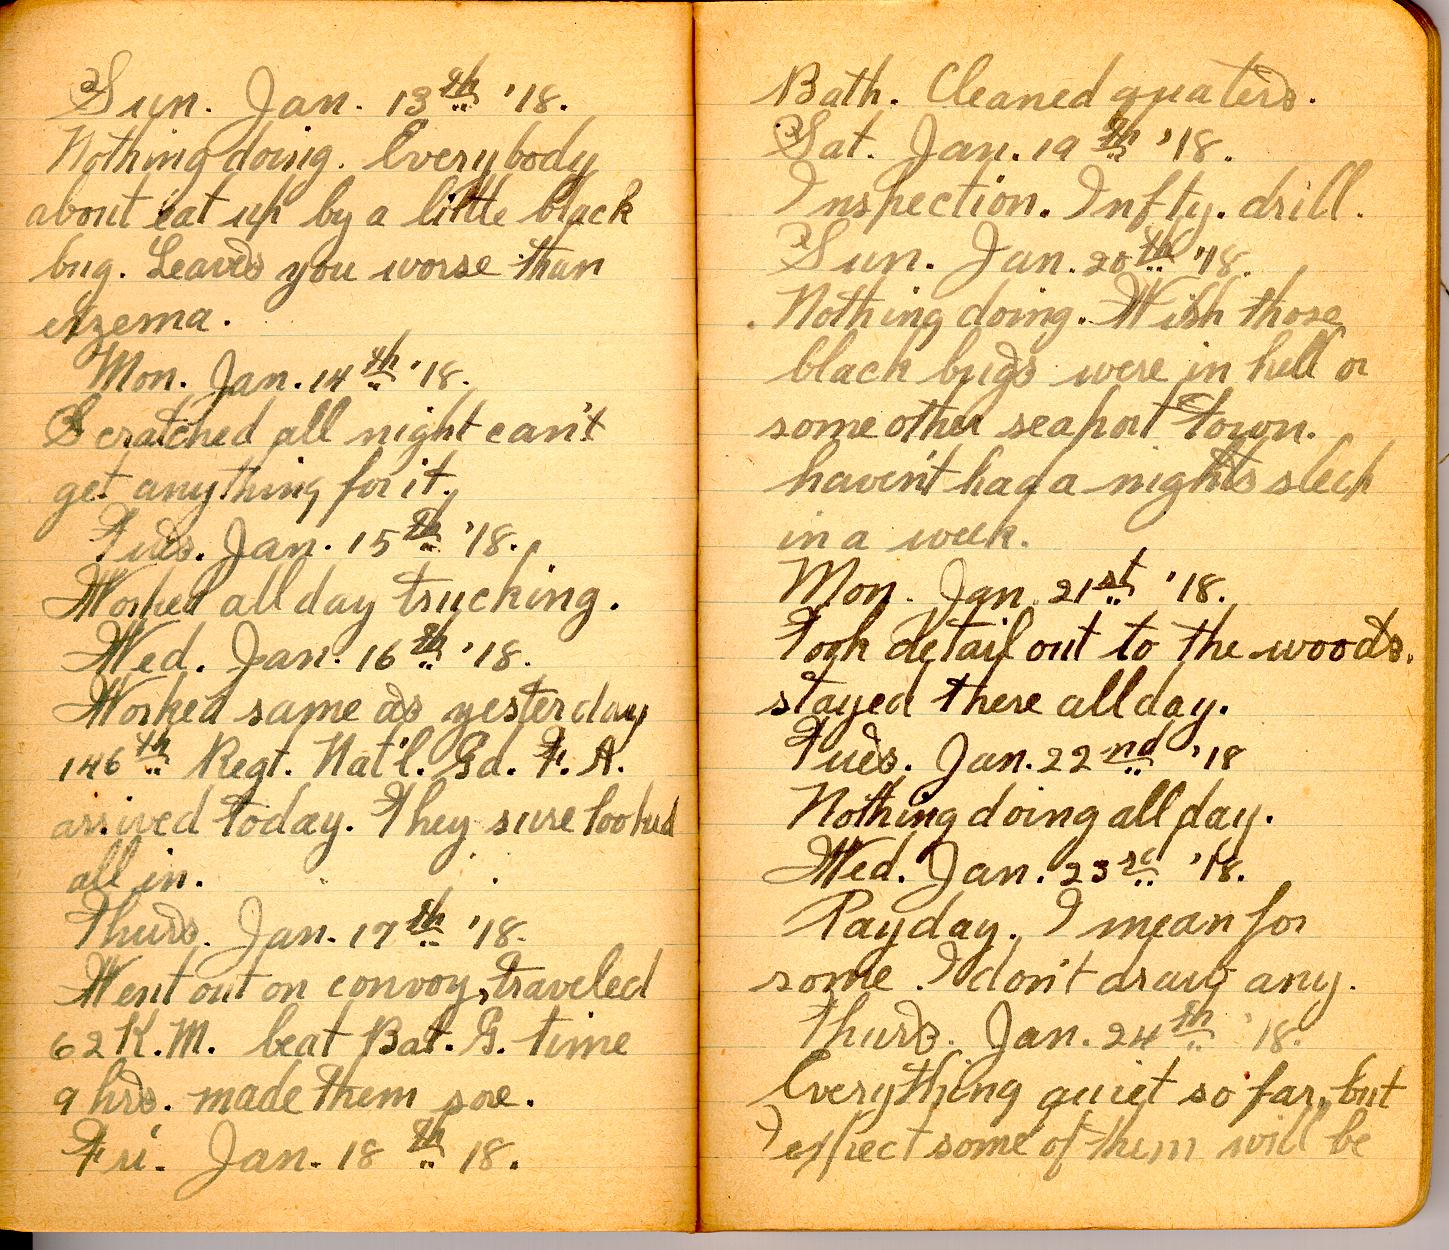 Sun. Jan. 13th '18.
Nothing doing. Everybody
about eat up by a little black
bug. Leaves you worse than
exzema.
Mon. Jan. 14th '18.
Scratched all night can't
get anything for it.
Tues. Jan. 15th '18.
Worked all day trucking.
Wed. Jan. 16th '18.
Worked same as yesterday
146th Regt. Nat'l. Gd. F. A.
arrived today. They sure looked
all in.
Thurs. Jan. 17th '18.
Went out on convoy, traveled
62 K.M. beat Bat. G. time
9 hrs. made them sore.
Fri. Jan. 18th 18.
Bath. Cleaned quaters.
Sat. Jan. 19th '18.
Inspection. Infty. drill.
Sun. Jan. 20th '18.
Nothing doing. Wish those
black bugs were in hell or
some other seaport town.
haven't had a night's sleep
in a week.
Mon. Jan. 21st '18.
Took detail out to the woods.
stayed there all day.
Tues. Jan. 22nd '18
Nothing doing all day.
Wed. Jan. 23rd '18.
Payday. I mean for
some. I don't draw any.
Thurs. Jan. 24th '18.
Everything quiet so far, but
I expect some of them will be